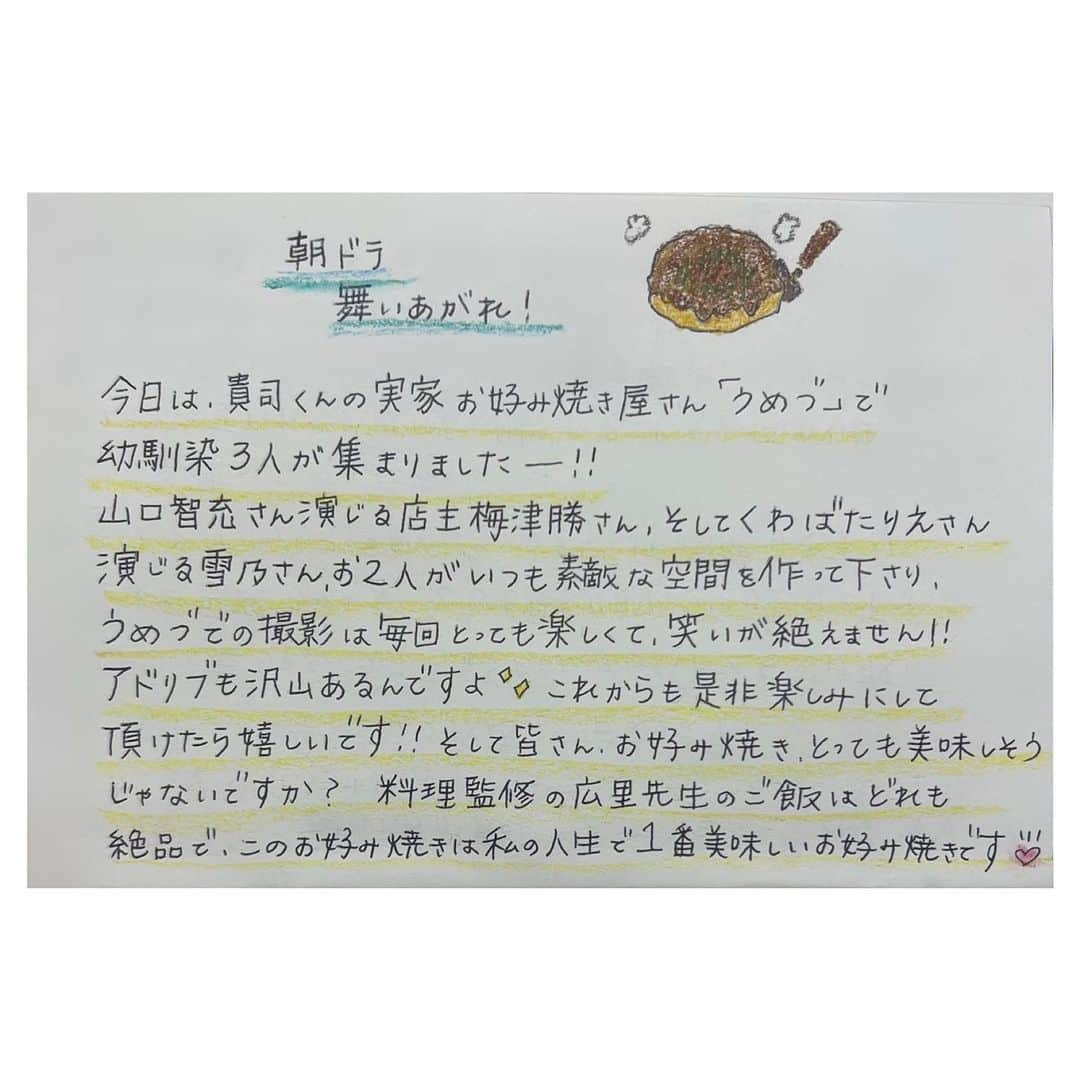 朝ドラ
舞いあがれ!
今日は、貴司くんの実家お好み焼き屋さん「うめづ」で
幼馴染3人が集まりましたー!!
山口智充さん演じる店主梅津勝さん、そしてくわばたりえさん
演じる雪乃さん、お2人がいつも素敵な空間を作って下さり、
うめづでの撮影は毎回とっても楽しくて、笑いが絶えません!!
アドリブも沢山あるんですよ これからも是非楽しみにして
頂けたら嬉しいです!! そして皆さん、お好み焼き、とっても美味しそう
じゃないですか? 料理監修の広里先生のご飯はどれも
絶品で、このお好み焼きは私の人生で1番美味しいお好み焼きです♡